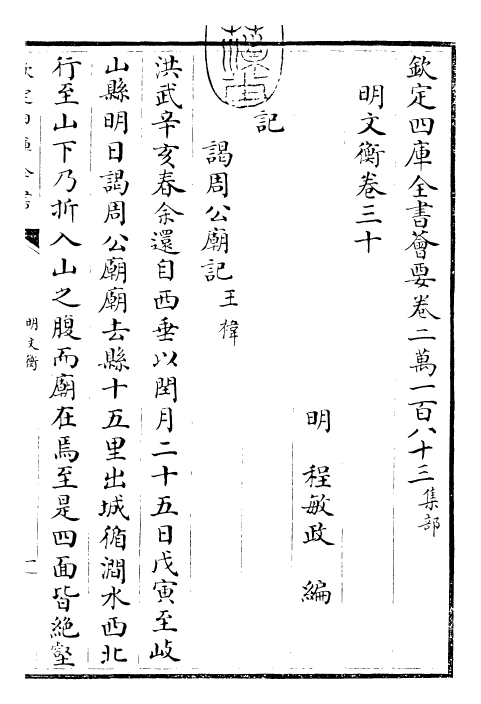 欽定四庫全書薈要卷二萬一百八十三集部
明文衡卷三十
明　程敏政　編
記
謁周公廟記王禕
洪武辛亥春余還自西垂以閏月二十五日戊寅至岐
山縣明日謁周公廟廟去縣十五里出城循澗水西北
行至山下乃折入山之腹而廟在焉至是四面皆絶壑
明文衡
一